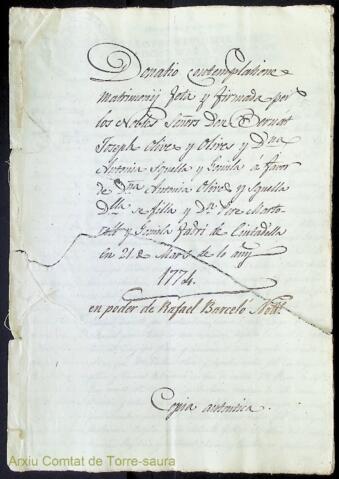 Donatio contemplatione
matrimonij feta y firmada per
los Nobles Señors Don Bernat
Joseph Olives y Olives y Dña
Antonia Squella y Gomila á favor
de Dña Antonia Olives y Squella
se filla y Dn Pere Marto-
rell y Gomila Fadri de Ciutadella
en 21 de Mars de lo any
1774.
en poder de Rafael Barceló Nott.
Copia autentica.
Arxiu Comtat de Torre-saura